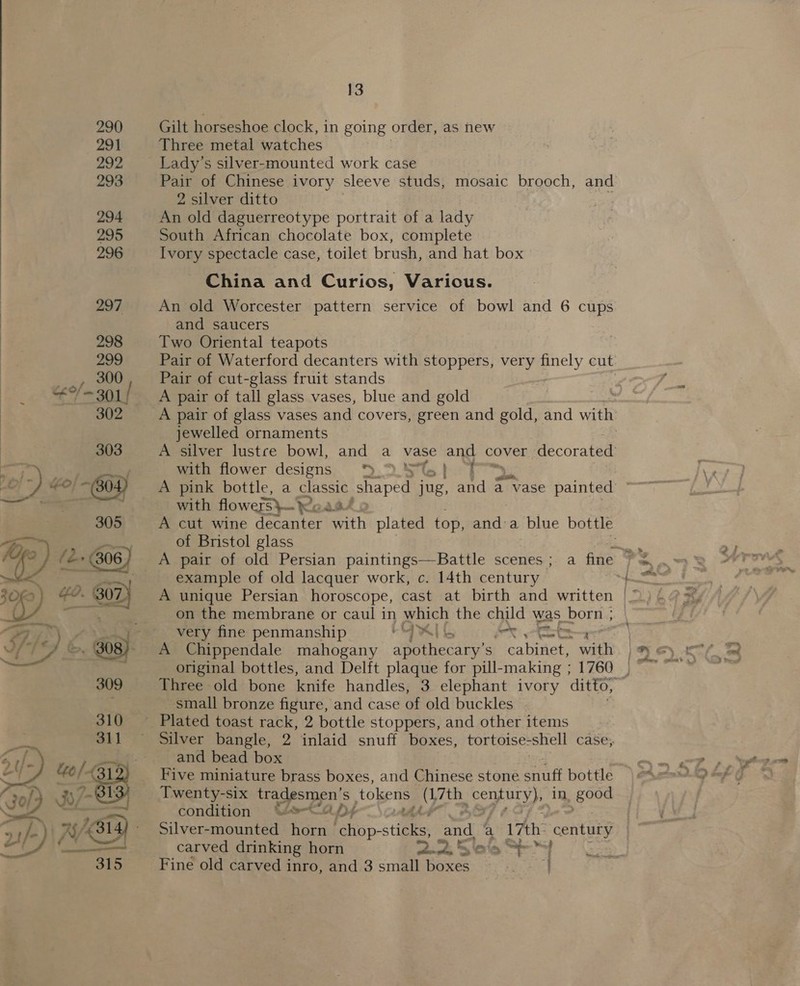 13
290 Gilt horseshoe clock, in going order, as new
291 Three metal watches
292 Lady's silver-mounted work case
293 Pair of Chinese ivory sleeve studs, mosaic brooch, and
2 silver ditto
294 An old daguerreotype portrait of a lady
295 South African chocolate box, complete
296 Ivory spectacle case, toilet brush, and hat box
China and Curios, Various.
297 An old Worcester pattern service of bowl and 6 cups
and saucers
298 Two Oriental teapots
299 Pair of Waterford decanters with stoppers, very finely cut
300 Pair of cut-glass fruit stands
301 A pair of tall glass vases, blue and gold
302 A pair of glass vases and covers, green and gold, and with
jewelled ornaments
303 A silver lustre bowl, and a vase and cover decorated
with flower designs
304 A pink bottle, a classic shaped jug, and a vase painted
with flowers
305 A cut wine decanter with plated top, and a blue bottle
of Bristol glass
306 A pair of old Persian paintings—Battle scenes; a fine
example of old lacquer work, c. 14th century
307 A unique Persian horoscope, cast at birth and written
on the membrane or caul in which the child was born;
very fine penmanship
308 A Chippendale mahogany apothecary's cabinet, with
original bottles, and Delft plaque for pill-making; 1760
309 Three old bone knife handles, 3 elephant ivory ditto,
small bronze figure, and case of old buckles
310 Plated toast rack, 2 bottle stoppers, and other items
311 Silver bangle, 2 inlaid snuff boxes, tortoise-shell case,
and bead box
312 Five miniature brass boxes, and Chinese stone snuff bottle
313 Twenty-six tradesmen's tokens (17th century), in good
condition
314 Silver-mounted horn chop-sticks, and a 17th century
carved drinking horn
315 Fine old carved inro, and 3 small boxes